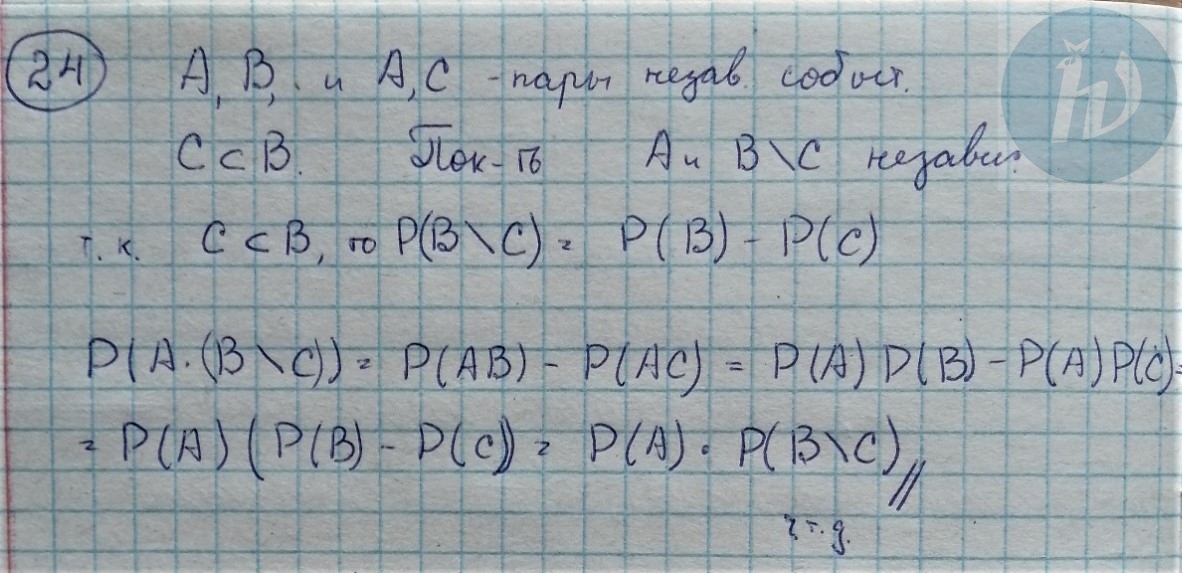 24 А, В, и А, С - пары незав. событ.
C ⊂ B. Пок-ть А и B \ C независ.
т. к. C ⊂ B, то P(B \ C) = P(B) - P(C)
P(A·(B \ C)) = P(AB) - P(AC) = P(A) P(B) - P(A) P(C) =
= P(A) (P(B) - P(C)) = P(A) · P(B \ C) //
ч.т.д.